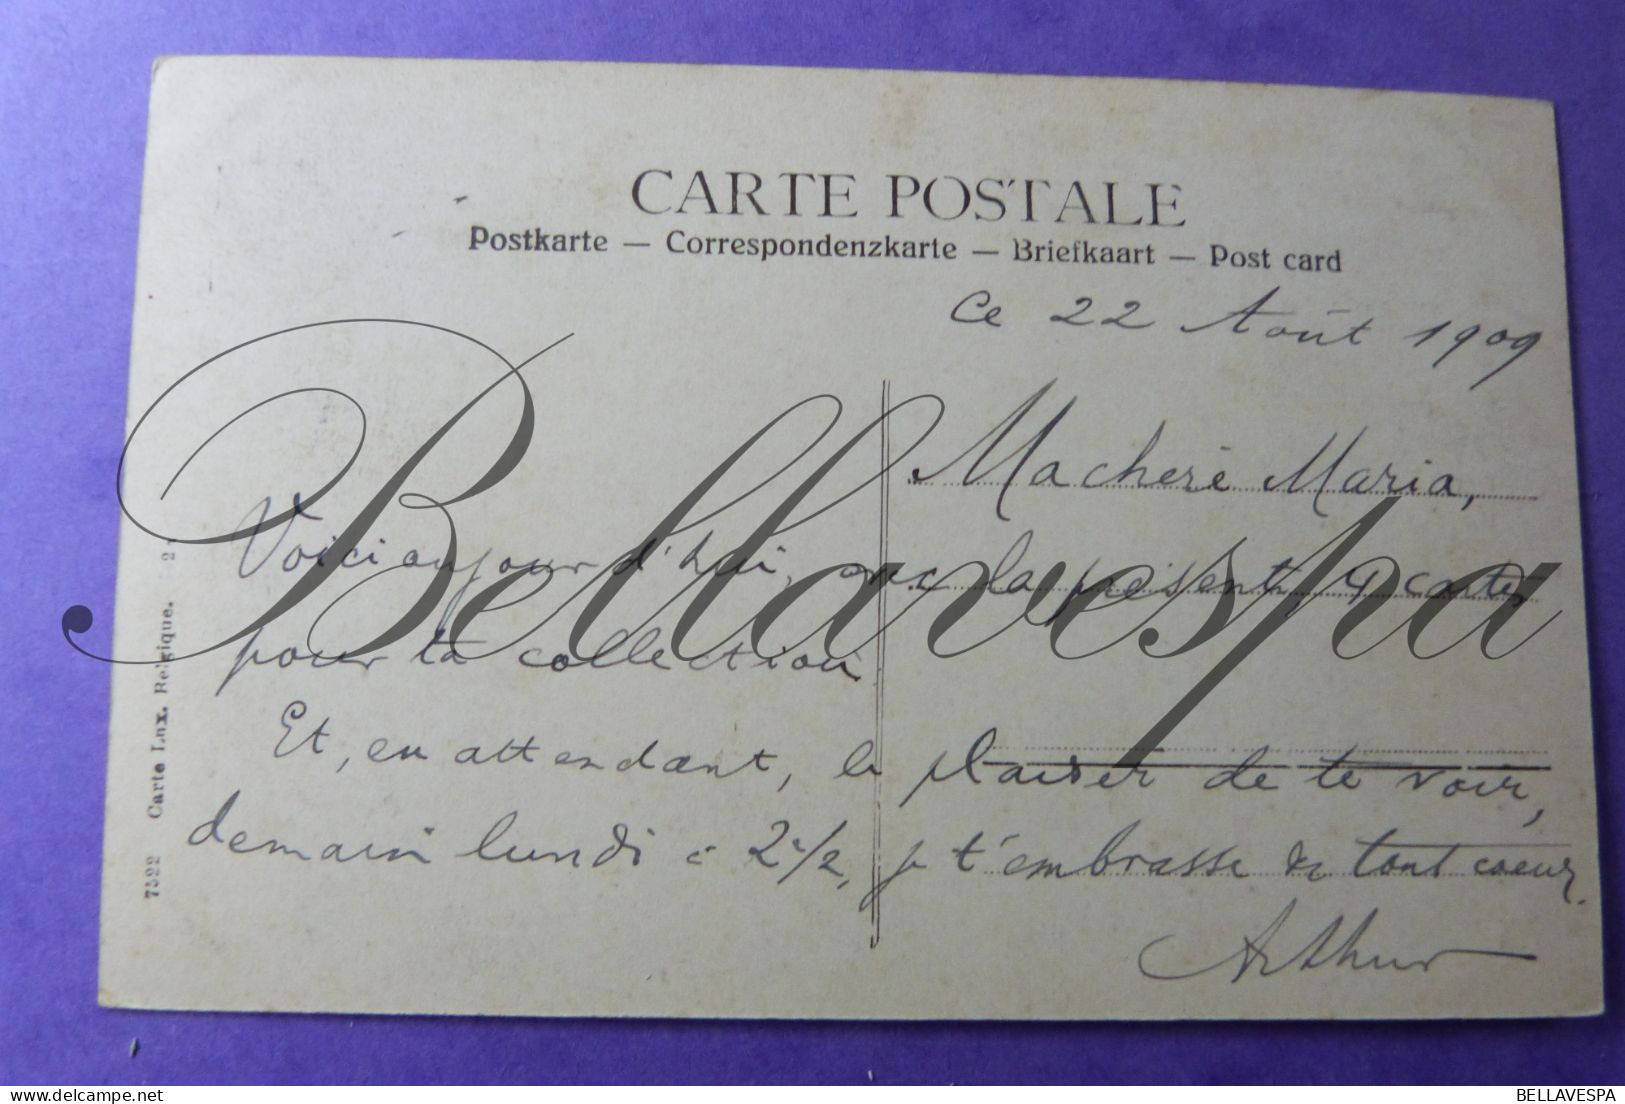 CARTE POSTALE
Postkarte — Correspondenzkarte — Briefkaart — Post card
Ce 22 Août 1909
Ma cheré Maria,
Voici aujourd'hui, avec la présent, 4 cartes
pour ta collection
Et, en attendant, le plaiser de te voir,
demain lundi à 2 1/2, je t'embrasse de tout coeur.
Arthur
7522 Carte Lux. Belgique. 2
Bellavespa
BELLAVESPA